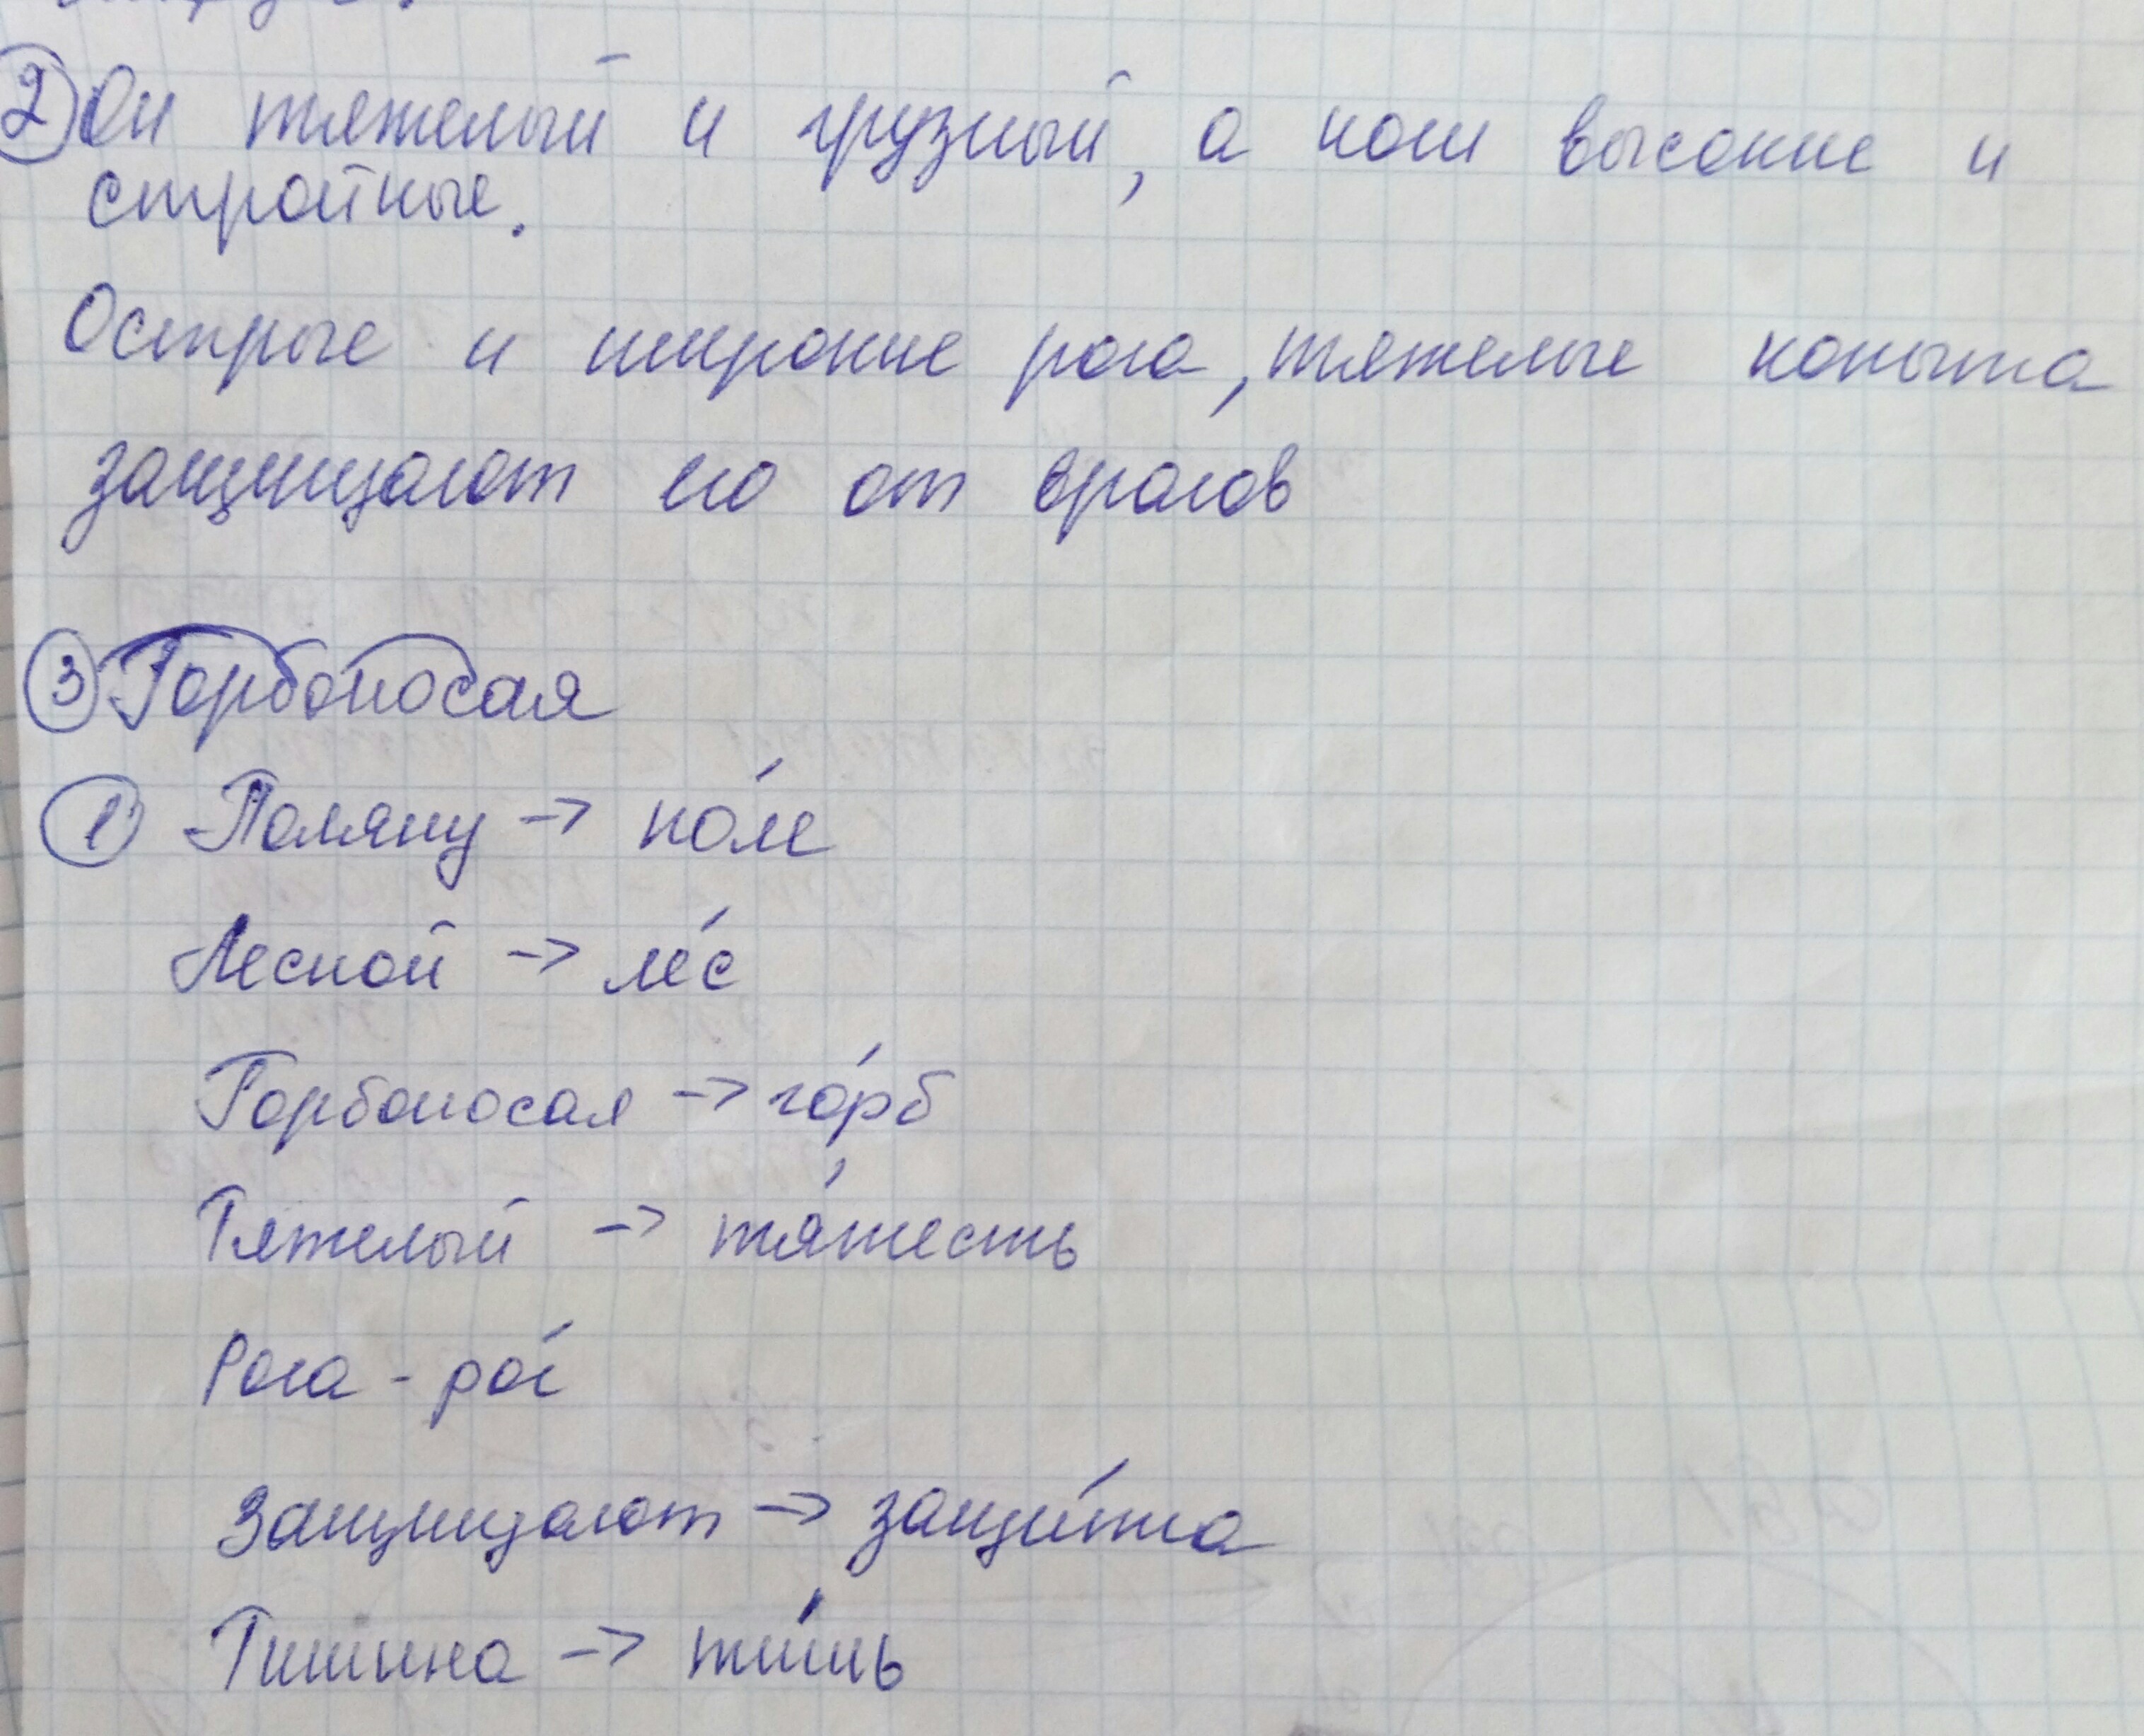 ② Он тяжелый и грузный, а ноги высокие и
стройные.
Острые и широкие рога, тяжелые копыта
защищают его от врагов
③ Горбоносая
① Поляну → по́ле
Лесной → ле́с
Горбоносая → го́рб
Тяжелый → тя́жесть
Рога - ро́г
Защищают → защи́тка
Тишина → ти́шь